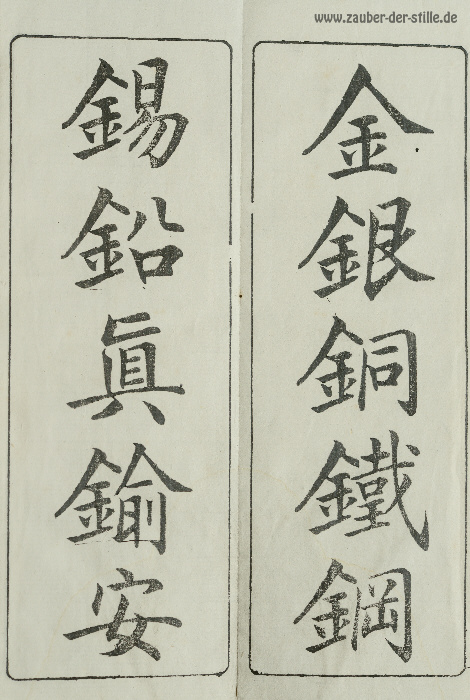 www.zauber-der-stille.de
金銀銅鐵鋼
錫鉛眞鍮安